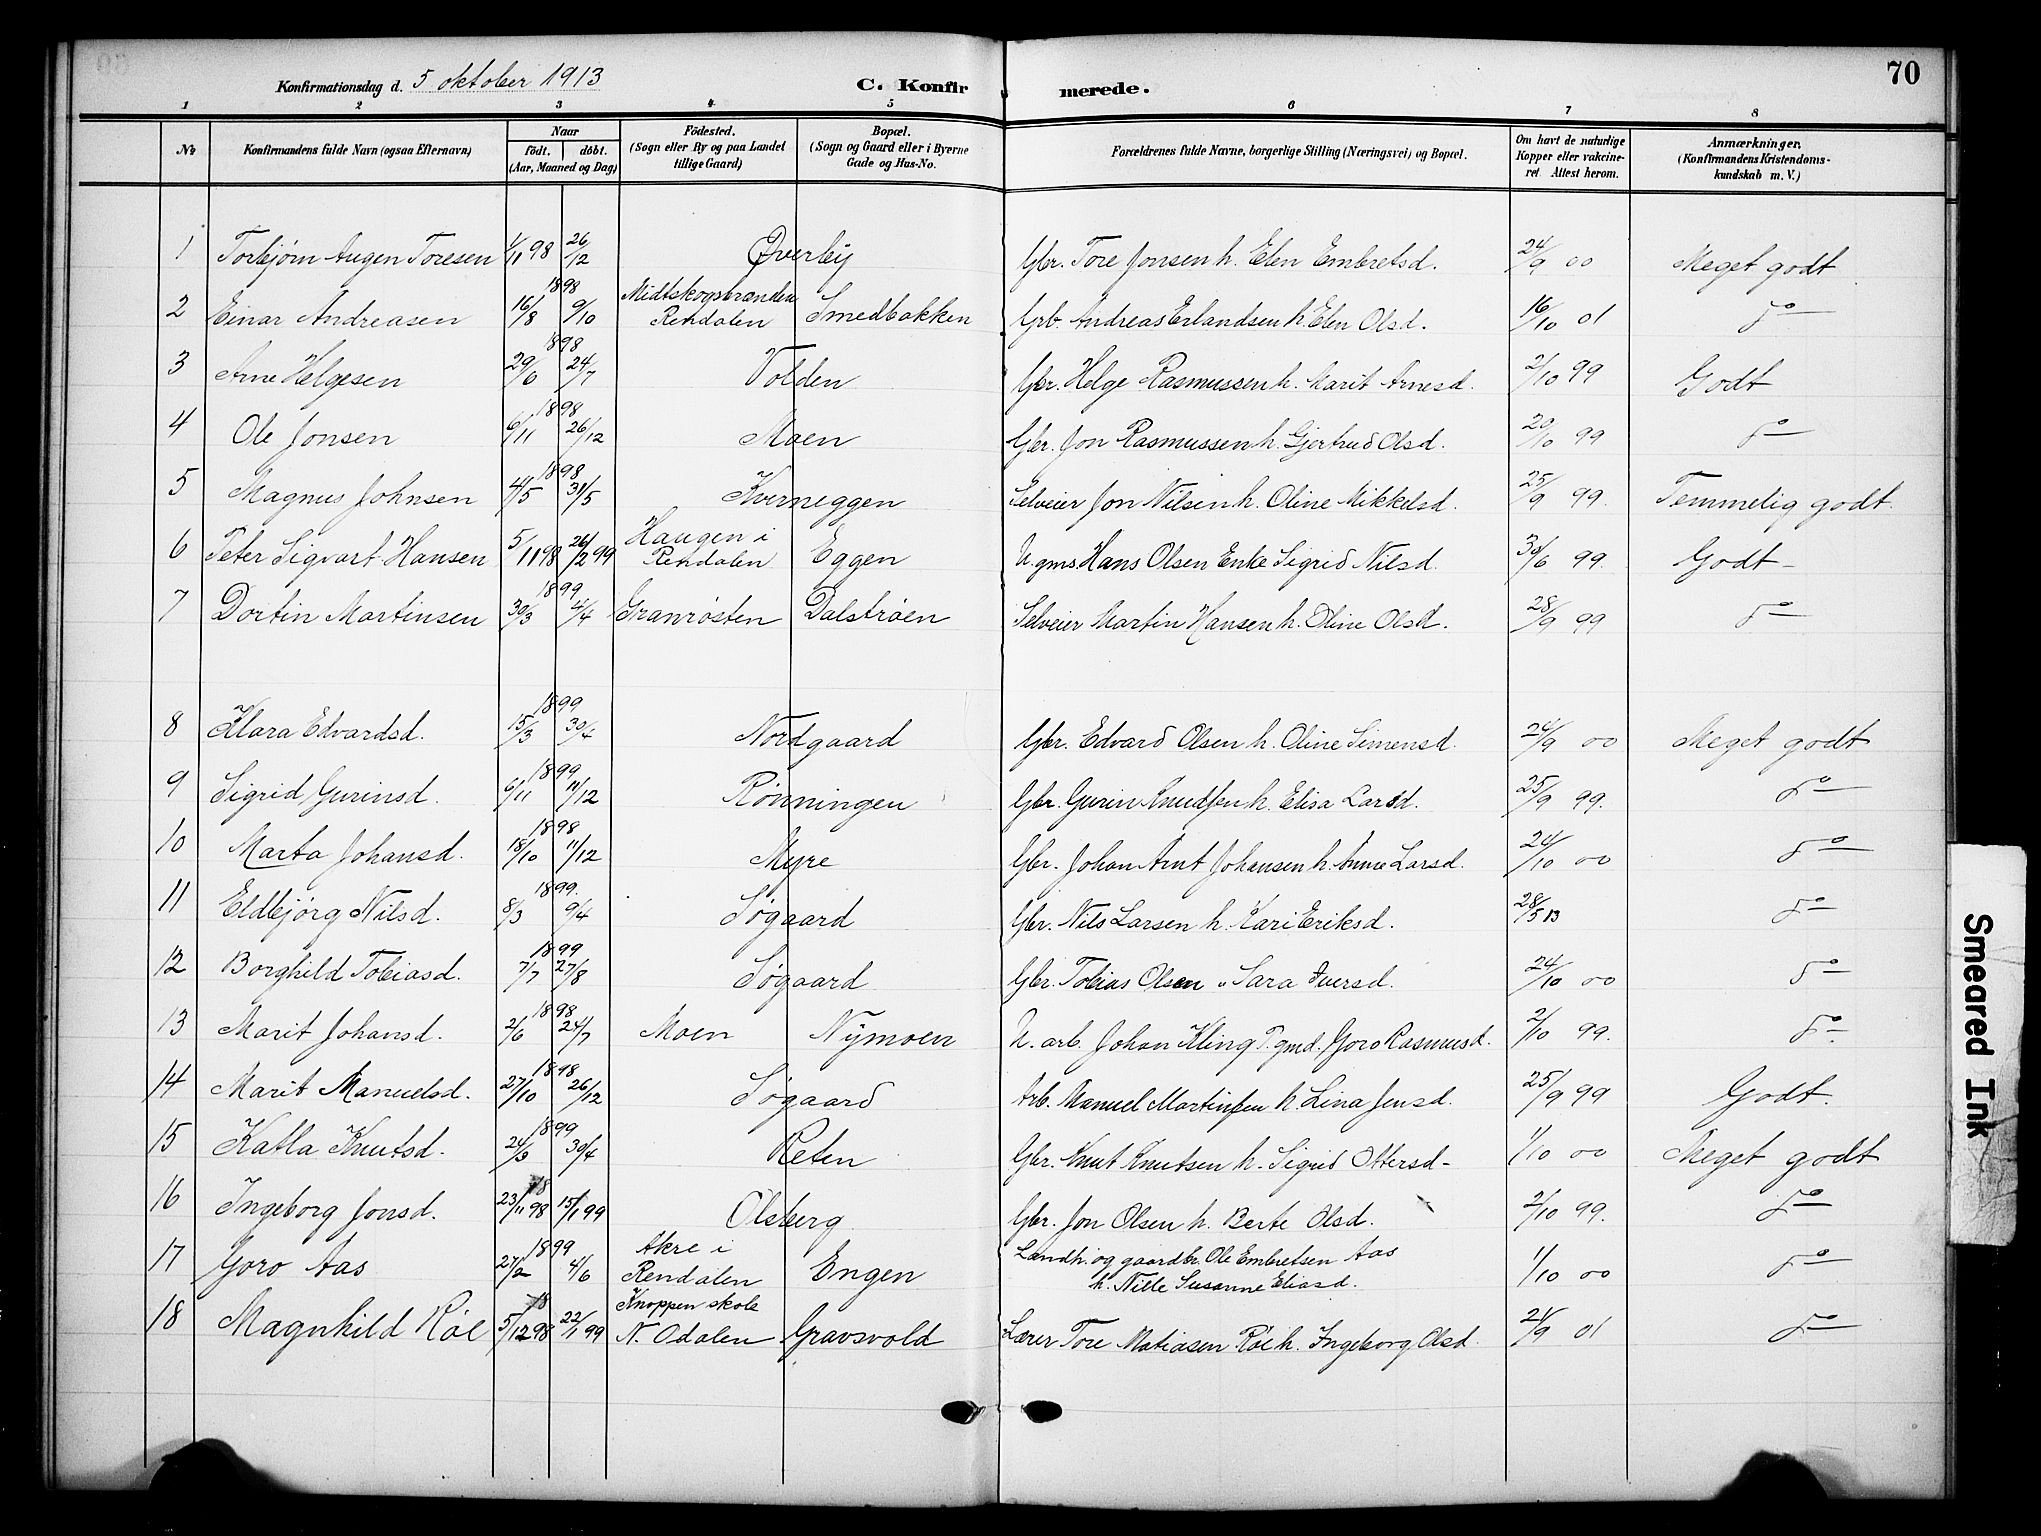 70
Konfirmationsdag d. 5 oktober 1913 C. Konfirmerede.
1 2 3 4 5 6 7 8
No Konfirmandens fulde Navn (ogsaa Efternavn) Naar födt. döbt. (Aar, Maaned og Dag) Födested. (Sogn eller By og paa Landet tillige Gaard) Bopæl. (Sogn og Gaard eller i Byerne Gade og Hus-No. Forældrenes fulde Navne, borgerlige Stilling (Næringsvei) og Bopæl. Om havt de naturlige Kopper eller vakcineret. Attest herom. Anmærkninger. (Konfirmandens Kristendomskundskab m. V.)
1 Torbjørn Augen Toresen 1/11 98 26/12 Øverby Gbr. Tore Jonsen h. Elen Embretsd. 24/9 00 Meget godt
2 Einar Andreasen 1898 16/8 9/10 Midtskogsbranden Rendalen Smedbakken Grb. Andreas Erlandsen h. Elen Olsd. 16/10 01 do
3 Arne Helgesen 1898 29/6 24/7 Volden Gbr. Helge Rasmussen h. Marit Arnesd. 2/10 99 Godt
4 Ole Jonsen 1898 6/11 26/12 Moen Gbr. Jon Rasmussen h. Gjertrud Olsd. 20/10 99 do
5 Magnus Johnsen 1898 4/5 31/5 Kverneggen Selveier Jon Nilsen h. Oline Mikkelsd. 25/9 99 Temmelig godt.
6 Peter Sigvart Hansen 5/11 98 26/2 99 Haugen i Rendalen Eggen U. gms Hans Olsen Enke Sigrid Nilsd. 30/6 99. Godt
7 Dortin Martinsen 1899 30/3 4/4 Granrøsten Dalstrøen Selveier Martin Hansen h. Oline Olsd. 28/9 99 do
8 Klara Edvardsd. 1899 15/3 30/4 Nordgaard Gbr. Edvard Olsen h. Oline Simensd. 24/9 00 Meget godt
9 Sigrid Gurinsd. 1899 6/11 11/12 Rønningen Gbr. Gurin Knudsen h. Elisa Larsd. 25/9 99. do
10 Marta Johansd. 1898 18/10 11/12 Myre Gbr. Johan Arnt Johansen h. Anne Larsd. 24/10 00 do
11 Eldbjørg Nilsd. 1899. 8/3 9/4 Søgaard Gbr. Nils Larsen h. Kari Eriksd. 28/5 13 do
12 Borghild Tobiasd. 1899 7/7 27/8 Søgaard Gbr. Tobias Olsen " Sara Iversd. 24/10 00 do
13 Marit Johansd. 1898 2/6 24/7 Moen Nymoen U. arb. Johan Kling P. gmd. Goro Rasmusd. 2/10 99. do
14 Marit Manuelsd. 1898 27/10 26/12 Søgaard Arb. Manuel Martinsen h. Lina Jensd. 25/9 99 Godt.
15 Katla Knutsd. 1899 24/3 30/4 Reten Gbr. Knut Knutsen h. Sigrid Ottersd 1/10 00 Meget godt
16 Ingeborg Jonsd. 18 23/11 98 15/1 99 Olsberg Gbr. Jon Olsen h. Berte Olsd. 2/10 99. do
17 Goro Aas 1899 27/2 4/6 Akre i Rendalen Engen Landh. og gaardbr. Ole Embretsen Aas h. Nille Susanne Eliasd. 1/10 00 do
18 Magnhild Röe 18 5/12 98 22/1 99 Knoppen skole N. Odalen Gravsvold Lærer Tore Matiasen Röe h. Ingeborg Olsd 24/9 01 do
Smeared Ink